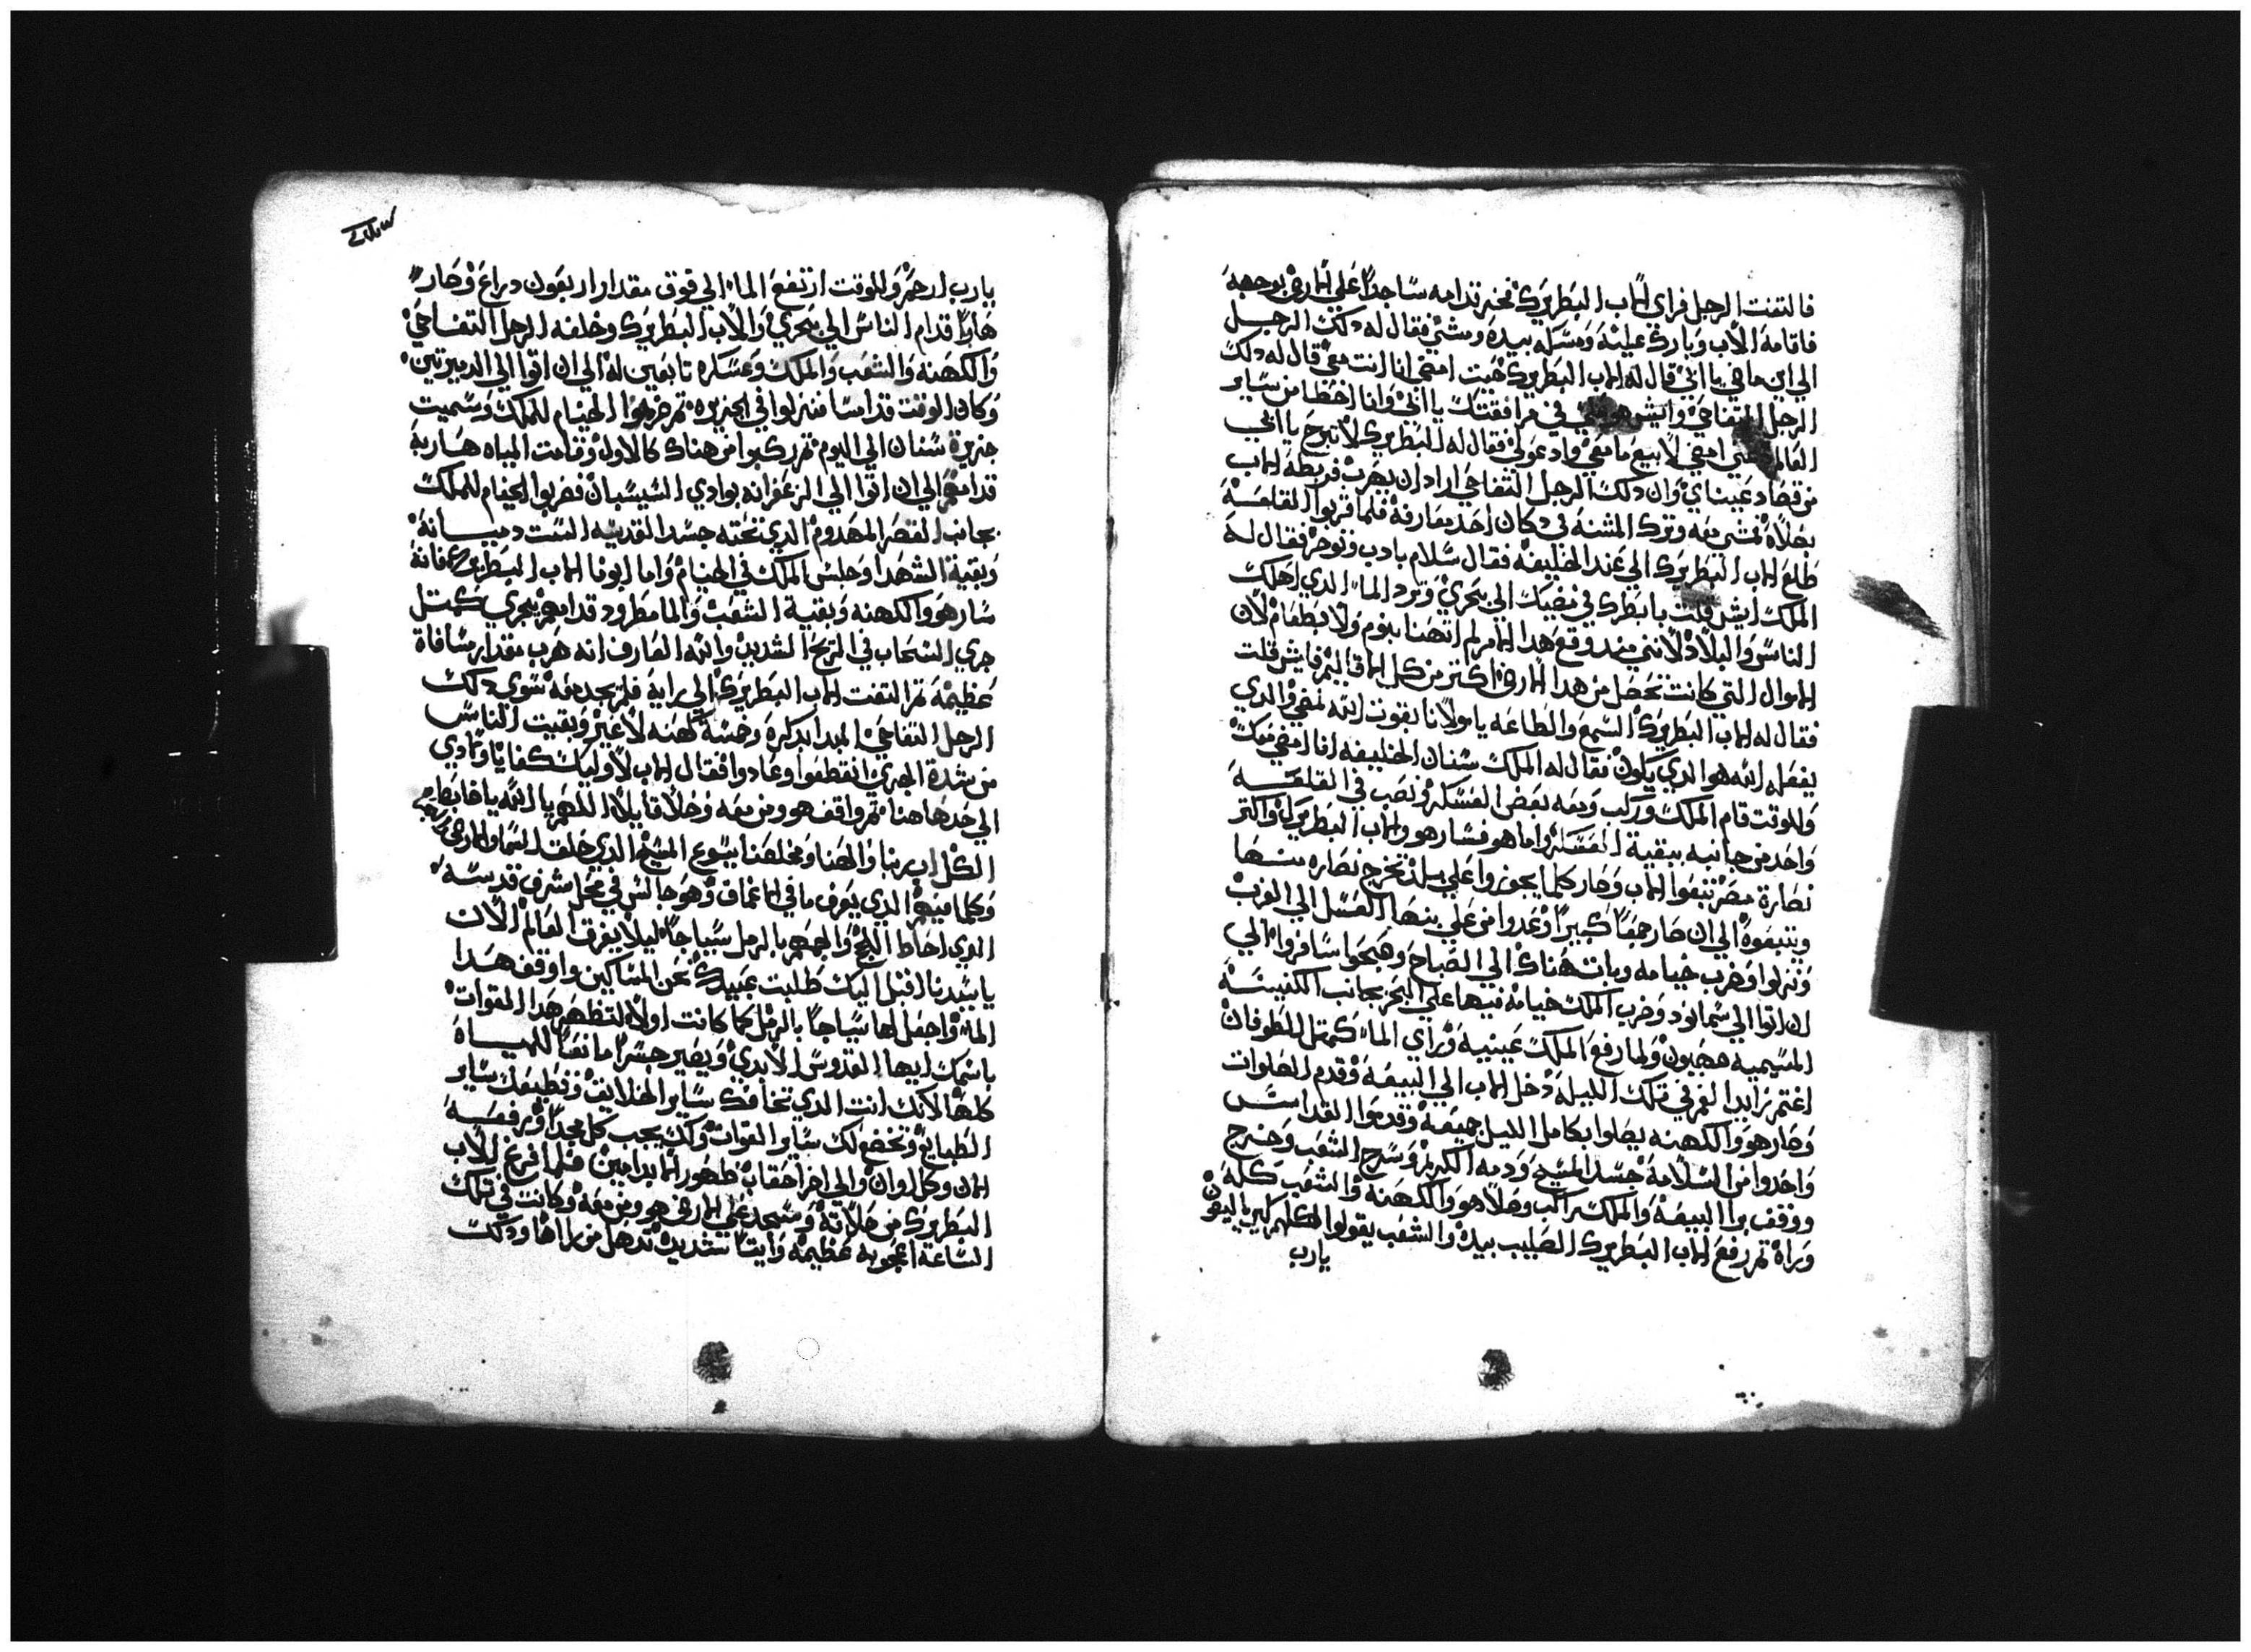 فالتفت الرجل فراي الاب البطريرك فخر قدامه ساجدا علي الارض بوجهه
فاقامه الاب وبارك عليه ومسكه بيده ومشي فقال له دلك الرجل
الي اين ماضي يا ابي قال له الاب البطريرك حيت امضي انا انت معي قال له دلك
الرجل التفاحي وايش هو في مرافقتك يا ابي وانا اخطا من ساير
العالم امضي لابيع ما معي وادعولي فقال له البطريرك لا تبرح يا ابني
من قصاد عيناي وان دلك الرجل التفاحي اراد ان يهرب فربطه الاب
بصلاه فمشي معه وترك المشنه في دكان احد معارفه فلما قربوا القلعه
طلع الاب البطريرك الي عند الخليفه فقال سلام بادب وتوحر فقال له
الملك ايش قلت يا بطرك في مضيك الي بحري وترد الما الدي اهلك
الناس والبلاد لانني مند وقع هدا الامر لم اتهنا بنوم ولا بطعام لان
الاموال التي كانت تحصل من هدا الارض اكتر من كل الاقاليم فايش قلت
فقال له الاب البطريرك السمع والطاعه يا مولانا بقوت الله نمضي والدي
يفعله الله هو الدي يكون فقال له الملك سنان الخليفه انا امضي معك
وللوقت قام الملك وركب ومعه بعض العسكر ونصب في القلعه
واحد من جانبه ببقية العسكر واما هو فسار هو والاب البطريرك واكتر
نصارة مصر تبعوا الاب وصار كلما يجوزوا علي بلد تخرج نصاره منها
ويتبعوه الي ان صار جمعا كبيرا وعدوا من علي بنها العسل الي الغرب
ونزلوا وضرب خيامه وبات هناك الي الصباح وصبحوا سافروا الي
ان اتوا الي سمانود وضرب الملك خيامه فيها علي البحر بجانب الكنيسه
المسيميه محبون ولما رفع الملك عينيه وراي الما كمتل الطوفان
اغتم زايد الغم في تلك الليله دخل الاب الي البيعه وقدم الصلوات
وصار هو والكهنه يصلوا بكامل الليل جميعه وقدموا القداس
واخدوا من السلامة جسد المسيح ودمه الكريم وسرح الشعب وخرج
ووقف برا البيعه والملك راكب وصلا هو والكهنه والشعب كله
وراه تم رفع الاب البطريرك الصليب بيده والشعب يقولوا كلهم كيرياليصون
يارب
يارب ارحم وللوقت ارتفع الما الي فوق مقدار اربعون دراع وصار
هاربا قدام الناس الي بحري والاب البطريرك وخلفه الرجل التفاحي
والكهنه والشعب والملك وعسكره تابعين له الي ان اتوا الي الديرتين
وكان الوقت قد امسا فنزلوا في الجزيره تم ضربوا الخيام للملك وسميت
جزيرة سنان الي اليوم تم ركبوا من هناك كالاول وقامت المياه هاربه
قدامهم الي ان اتوا الي الزعفرانه بوادي السيسبان فضربوا الخيام للملك
بجانب القصر المهدوم الدي تحته جسد القديسه الست دميانه
وبقية الشهدا وجلس الملك في الخيام واما ابونا الاب البطريرك فانه
سار هو والكهنه وبقية الشعب والما مطرود قدامهم يجري كمتل
جري السحاب في الريح الشديد والله العارف انه هرب مقدار مسافة
عظيمة تم التفت الاب البطريرك الي وراية فلم يجد معه سوي دلك
الرجل التفاحي المبدا بدكره وخمسة كهنه لا غير وبقيت الناس
من شدة الجري انقطعوا وعادوا فقال الاب لاوليك كفانا وتمادي
الي حد هاهنا تم واقف هو ومن معه وصلا قايلا اللهم يا الله يا ضابط
الكل ابو ربنا والهنا ومخلصنا يسوع المسيح الدي خلق السما والارض
وكلما فيهم الدي يعرف ما في الاعماق وهو جالس في محل مشرف قدسه
الدي احاط اللج والجهم بالرمل سياجا ليلا يغرق العالم الان
يا سيدنا اقبل اليك طلبت عبيدك نحن المساكين واوقف هدا
الما واجعل لها سياجا بالرمل كما كانت اولا لتظهر هدا القوات
باسمك ايها القدوس الابدي ويصير جسرا مانعا للمياه
كلها لانك انت الدي تخافك ساير الخلايق وتطيعك ساير
الطبايع وتخضع لك ساير القوات ولك يجب كل مجدا ورفعه
الان وكل اوان والي اخر احقاب طهور الابد امين فلما فرغ الاب
البطريرك من صلاته وسجد علي الارض هو ومن معه وكانت في تلك
الساعه اعجوبه عظيمه وايتا شديده تدهل من راها ودلك